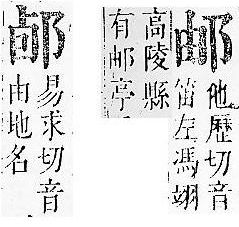 邮
他歷切音
笛左馮翊
高陵縣
有邮亭
易求切音
由地名